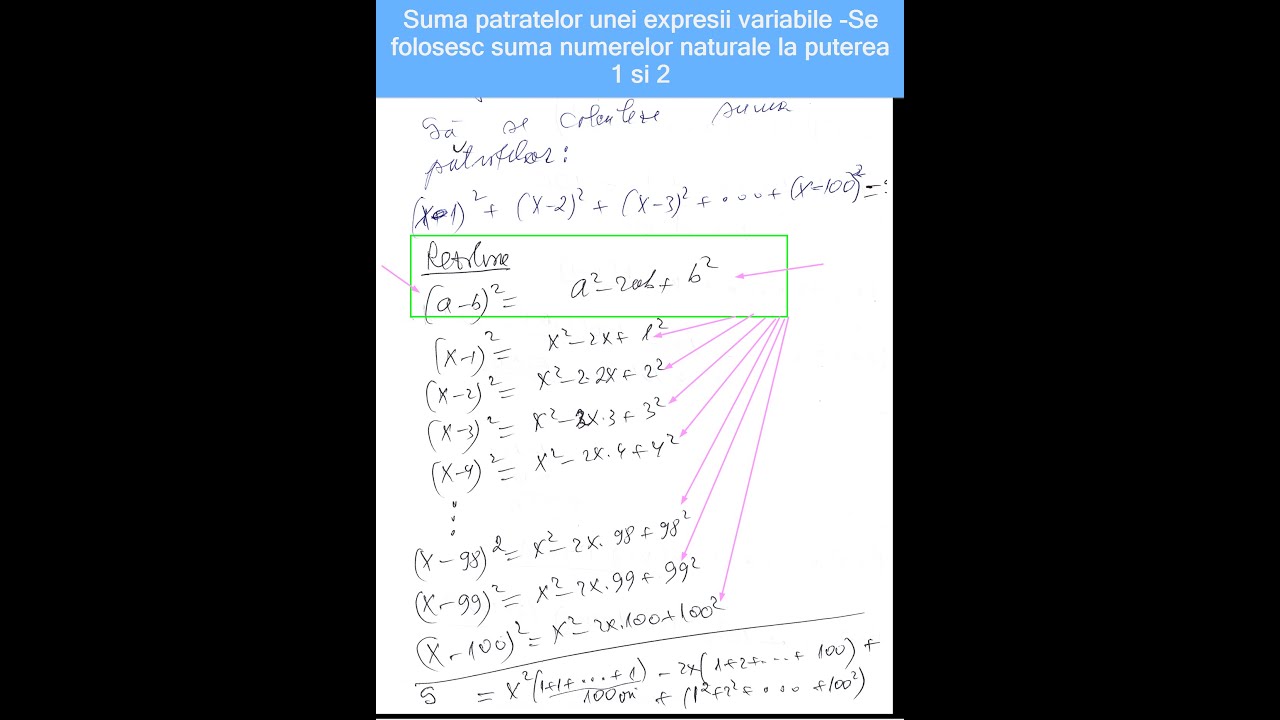 Suma patratelor unei expresii variabile -Se
folosesc suma numerelor naturale la puterea
1 si 2
Să se calculeze suma
pătratelor:
(x-1)² + (x-2)² + (x-3)² + ... + (x-100)² = :
Rezolvare
(a-b)² = a² - 2ab + b²
(x-1)² = x² - 2x + 1²
(x-2)² = x² - 2·2x + 2²
(x-3)² = x² - 2x·3 + 3²
(x-4)² = x² - 2x·4 + 4²
⋮
(x-98)² = x² - 2x·98 + 98²
(x-99)² = x² - 2x·99 + 99²
(x-100)² = x² - 2x·100 + 100²
S = x²(1+1+...+1) - 2x(1+2+...+100) +
100 ori + (1²+2²+...+100²)